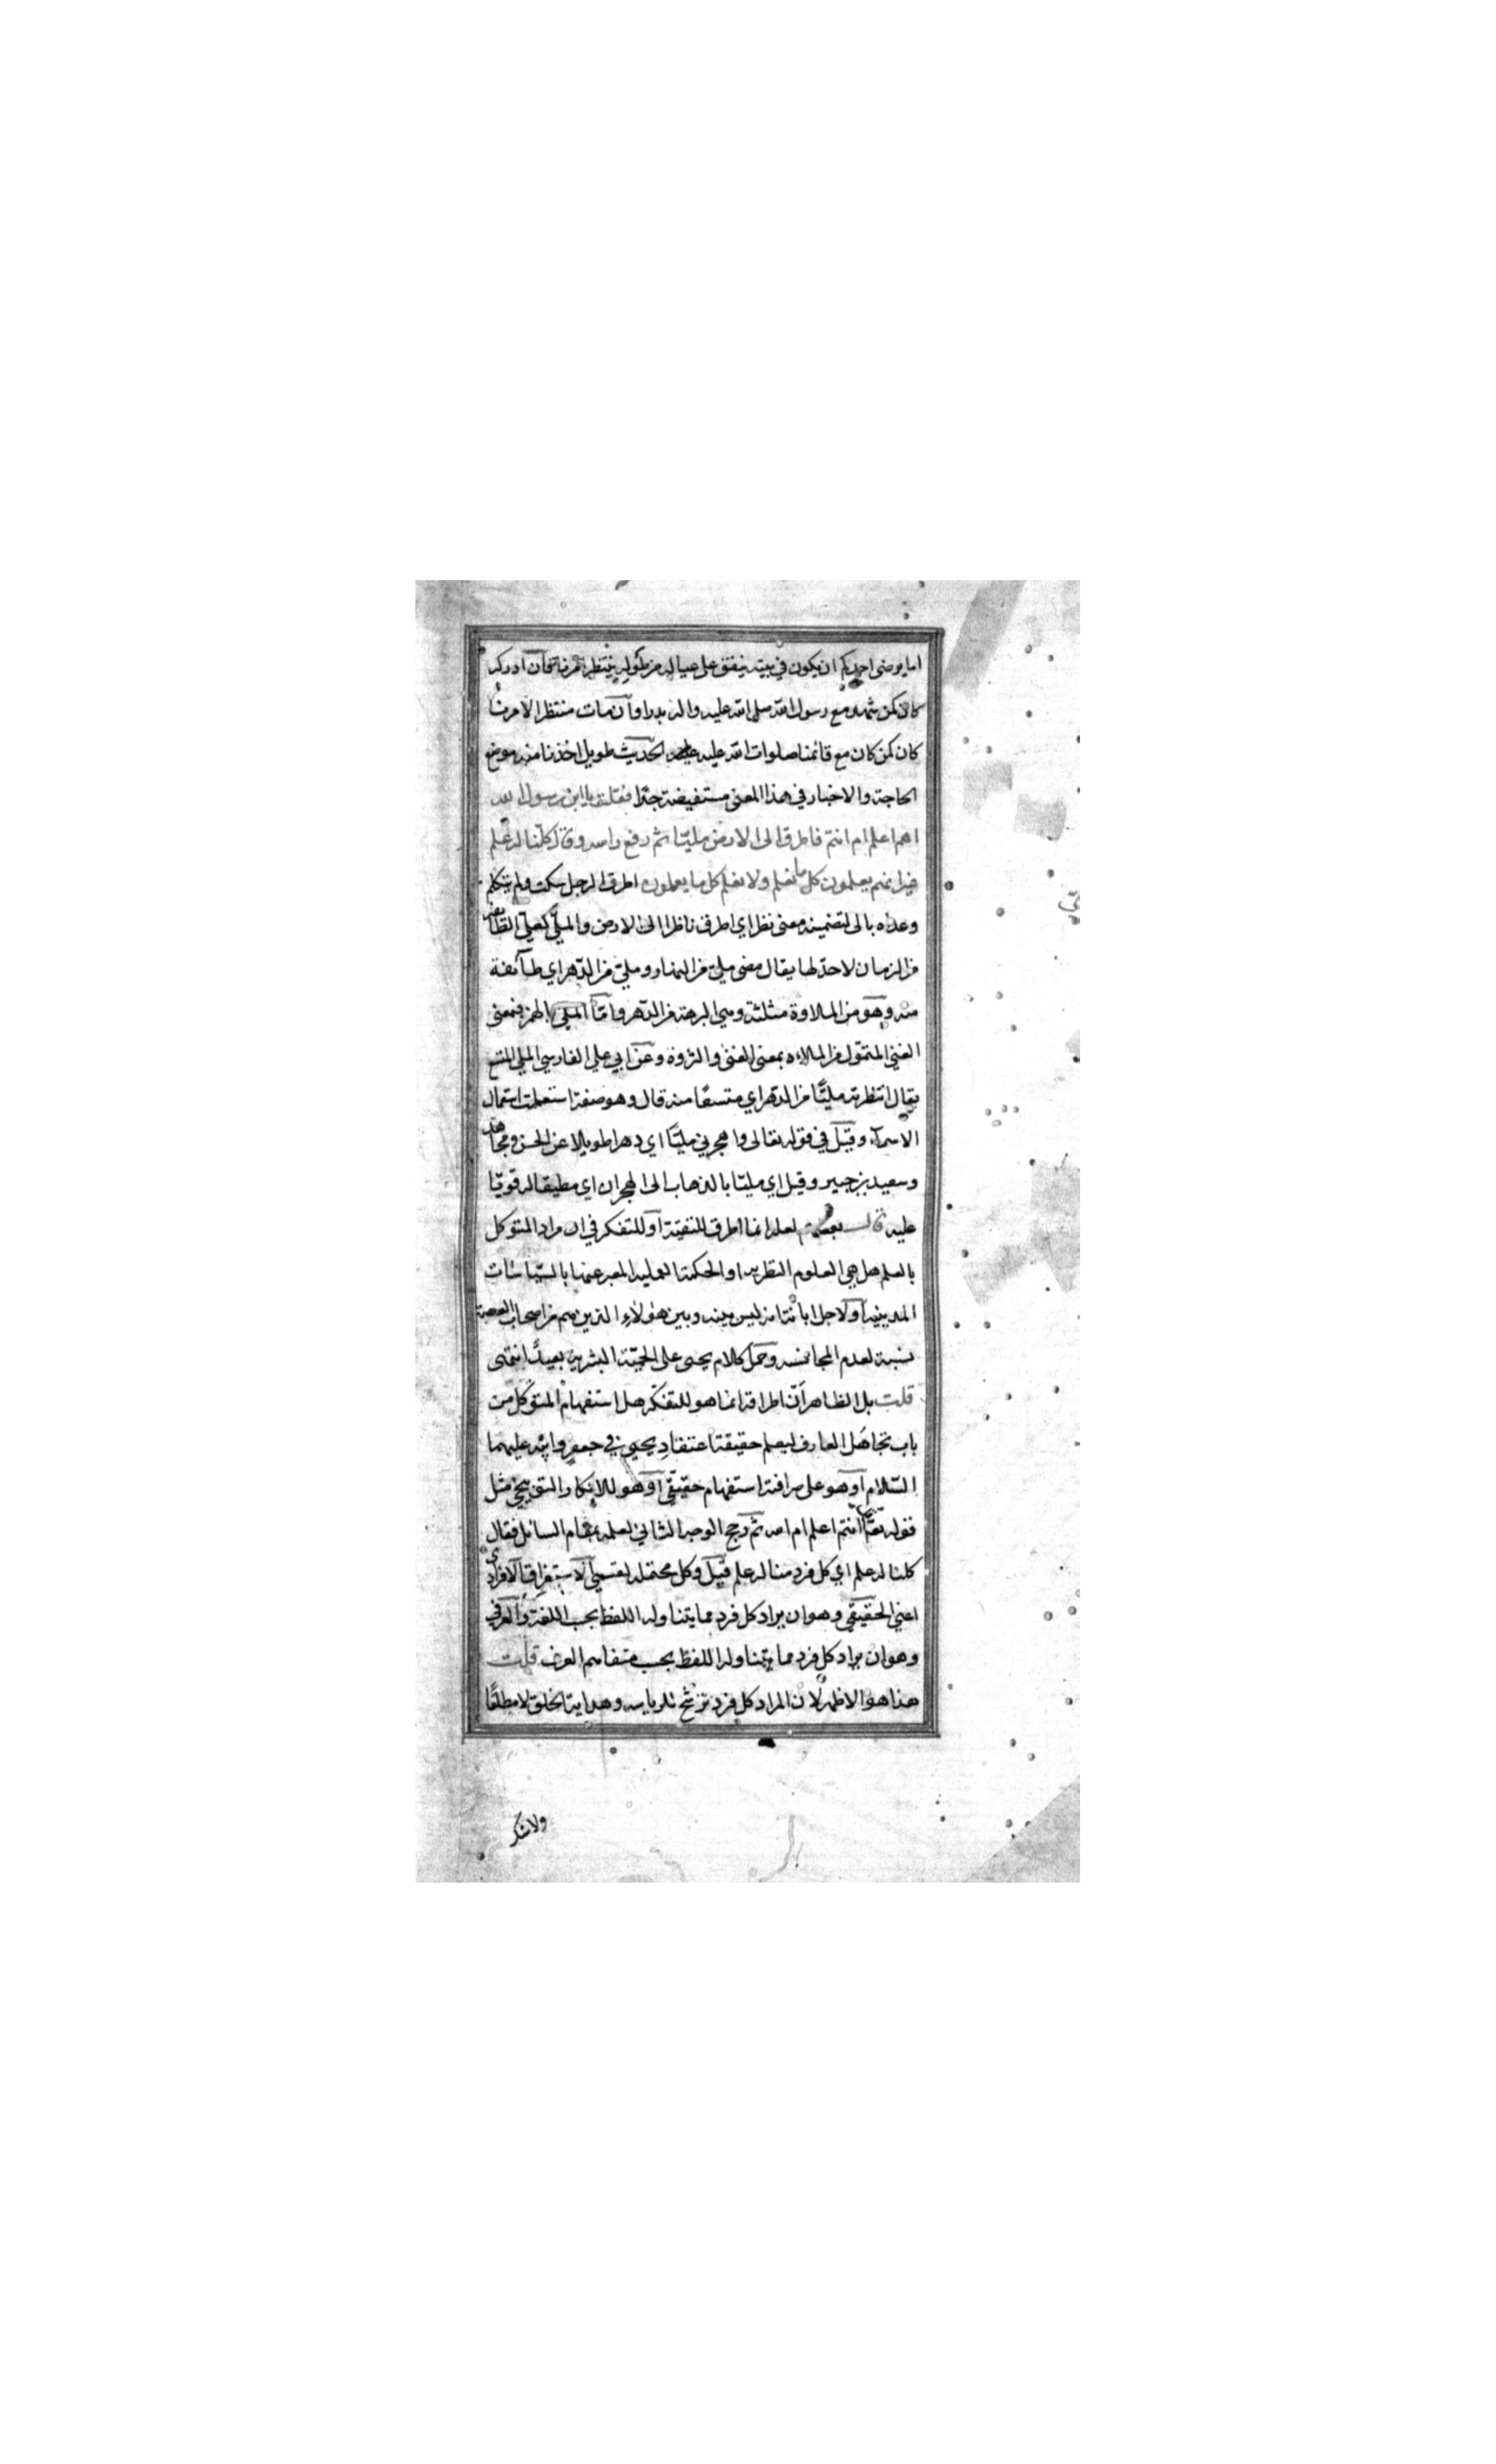 اما يرضى احدكم ان يكون في بيته ينفق على عياله من طوله ينتظر امرنا فان ادركه
كان كمن شهد مع رسول الله صلى الله عليه واله بدرا وان مات منتظرا لامرنا
كان كمن كان مع قائمنا صلوات الله عليه الحديث طويل اخذنا منه موضع
الحاجة والاخبار في هذا المعنى مستفيضة جدّا فقلت يا ابن رسول الله
اهم اعلم ام انتم فاطرق الى الارض مليّا ثم رفع راسه وقال كلّنا له علم
غير انهم يعلمون كل ما نعلم ولا نعلم كل ما يعلمون اطرق الرجل سكت ولم يتكلم
وعداه بالى لتضمينه معنى نظر اي اطرق ناظرا الى الارض والمليّ كعليّ الطائفة
من الزمان لا حدّ لها يقال مضى مليّ من النهار ومليّ من الدّهر اي طآئفة
منه وهو من الملاوة مثلثة وهي البرهة من الدّهر وامّا المليّ بالهمز فبمعنى
الغني المتموّل من الملاءه بمعنى الغنى والثروة وعن ابي علي الفارسي الملي المتسع
يقال انتظرته مليًّا من الدّهر اي متسعًا منه قال وهو صفة استعملت استعمال
الاسمآء وقيل في قوله تعالى واهجرني مليًّا اي دهرا طويلا عن الحسن ومجاهد
وسعيد بن جبير وقيل اي مليّا بالذهاب الى الهجران اي مطيقا له قويّا
عليه قال بعضهم لعله انما اطرق للتقيّة او للتفكر في ان مراد المتوكل
بالعلم هل هي العلوم النظريه او الحكمة العمليه المعبر عنها بالسّياسات
المدينيه او لاجل ابانة انه ليس بينه وبين هؤلاء الذين هم من اصحاب العصمة
نسبة لعدم المجانسه وحمل كلام يحيى على الجبّة البشرية بعيدٌ انتهى
قلت بل الظاهر انّ اطراقه انما هو للتفكّر هل استفهام المتوكل من
باب تجاهل العارف ليعلم حقيقة اعتقاد يحيى في جعفر وابيه عليهما
السّلام او هو على صرافة استفهام حقيقي او هو للانكار التوبيخي مثل
قوله تعالى أأنتم اعلم ام الله ثم رجح الوجه الثاني لعلمه بمقام السائل فقال
كلنا له علم اي كل فرد منا له علم قيل وكل محتمله لقسمي الاستغراق الافرادي
اعني الحقيقي وهو ان يراد كل فرد مما يتناوله اللفظ بحسب اللغة والعرفي
وهو ان يراد كل فرد مما يتناوله اللفظ بحسب متفاهم العرف قلت
هذا هو الاظهر لان المراد كل فرد ترشّح للرياسه وهداية الخلق لا مطلقًا
ولا شك